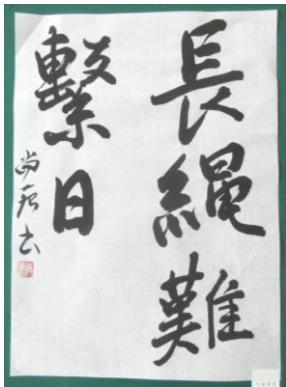 長繩難
繫日